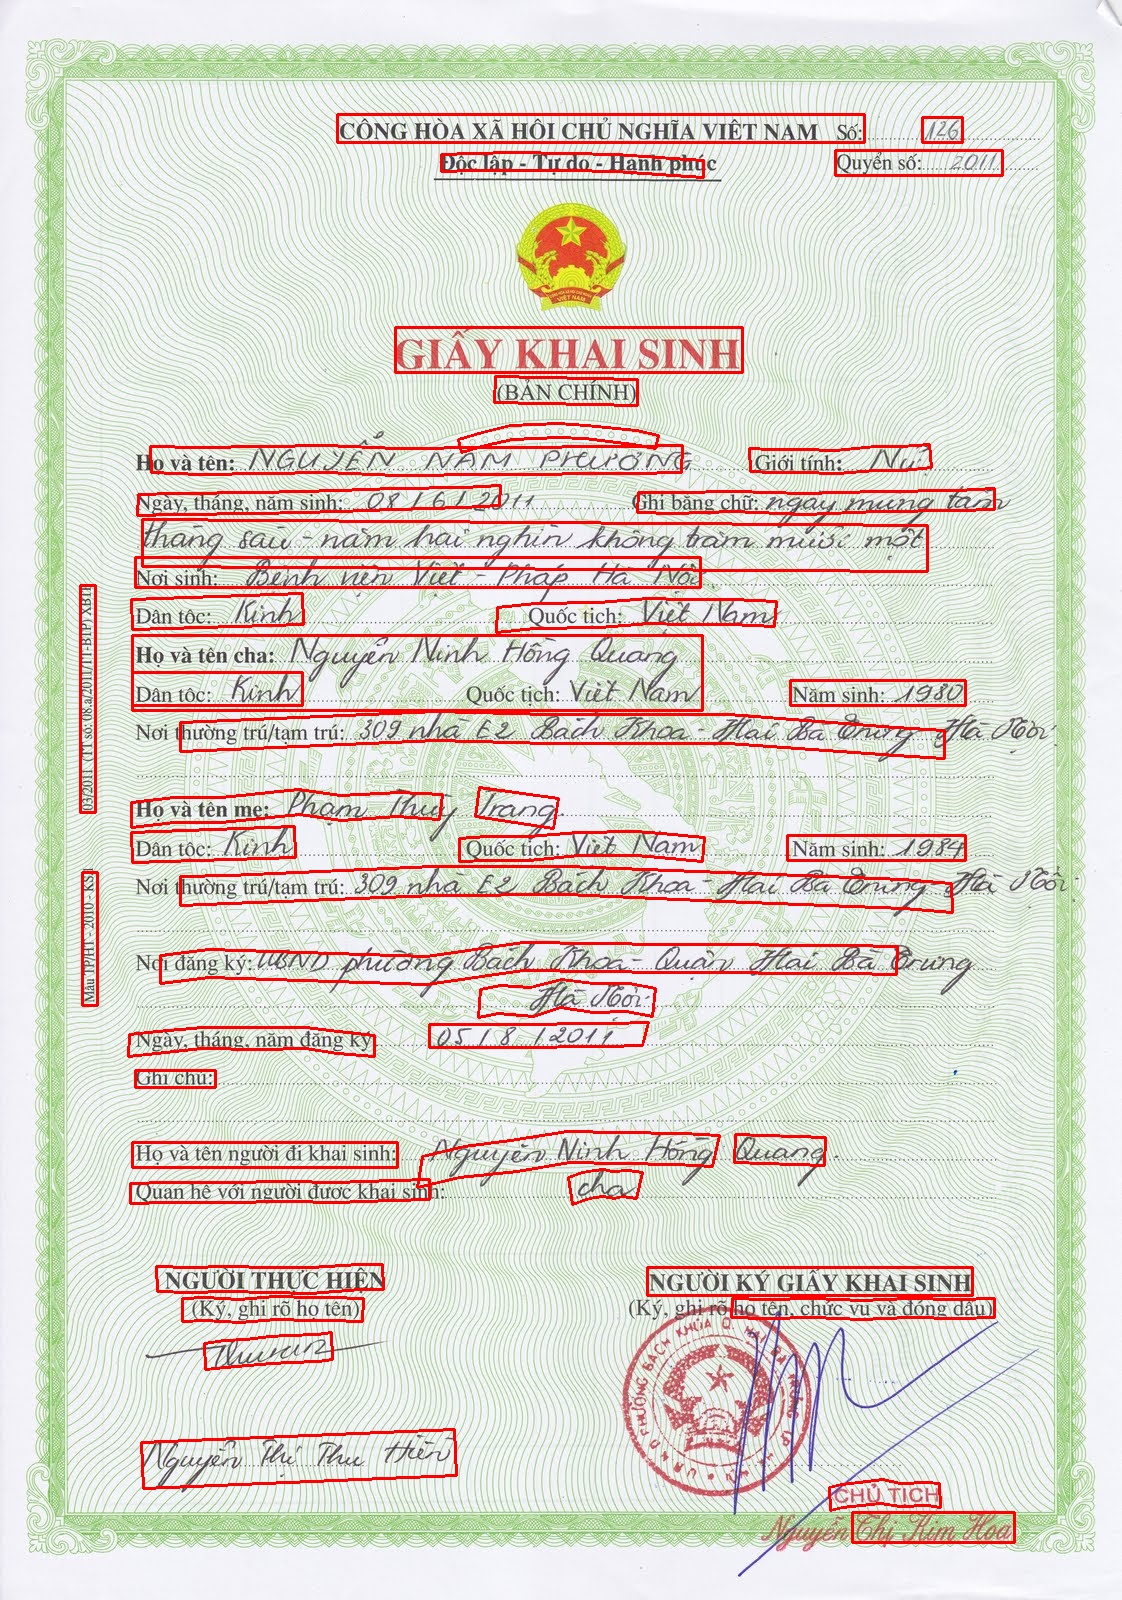 CỘNG HÒA XÃ HỘI CHỦ NGHĨA VIỆT NAM Số: 126
Độc lập - Tự do - Hạnh phúc Quyển số: 2011
GIẤY KHAI SINH
(BẢN CHÍNH)
Họ và tên: NGUYỄN NAM PHƯƠNG Giới tính: Nữ
Ngày, tháng, năm sinh: 08/6/2011 Ghi bằng chữ: ngày mùng tám
tháng sáu - năm hai nghìn không trăm mười một
Nơi sinh: Bệnh viện Việt - Pháp Hà Nội
Dân tộc: Kinh Quốc tịch: Việt Nam
Họ và tên cha: Nguyễn Ninh Hồng Quang
Dân tộc: Kinh Quốc tịch: Việt Nam Năm sinh: 1980
Nơi thường trú/tạm trú: 309 nhà E2 Bách Khoa - Hai Bà Trưng - Hà Nội
Họ và tên mẹ: Phạm Thuỳ Trang
Dân tộc: Kinh Quốc tịch: Việt Nam Năm sinh: 1984
Nơi thường trú/tạm trú: 309 nhà E2 Bách Khoa - Hai Bà Trưng - Hà Nội
Nơi đăng ký: UBND phường Bách Khoa - Quận Hai Bà Trưng
Hà Nội
Ngày, tháng, năm đăng ký 05/8/2011
Ghi chú:
Họ và tên người đi khai sinh: Nguyễn Ninh Hồng Quang
Quan hệ với người được khai sinh: cha
NGƯỜI THỰC HIỆN NGƯỜI KÝ GIẤY KHAI SINH
(Ký, ghi rõ họ tên) (Ký, ghi rõ họ tên, chức vụ và đóng dấu)
Nguyễn Thị Thu Hiền
CHỦ TỊCH
Nguyễn Thị Kim Hoa
Mẫu TP/HT - 2010 - KS.1
03/2011 (TT số: 08.a/2011/TT-BTP) XB11